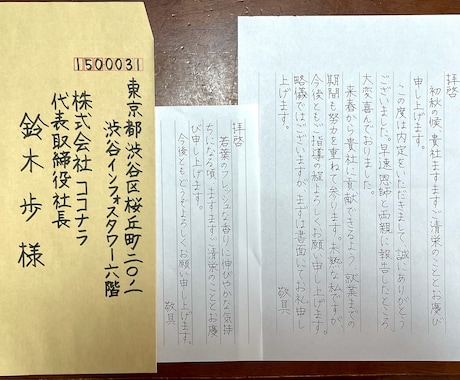 1500031
東京都渋谷区桜丘町二〇ノ一
渋谷インフォスタワー六階
株式会社ココナラ
代表取締役社長
鈴木歩様
拝啓
若葉のフレッシュな香りに伸びやかな気持
ちになる頃、ますますご清栄のこととお慶
び申し上げます。
今後ともどうぞよろしくお願い申し上げます。
敬具
拝啓
初秋の候、貴社ますますご清栄のこととお慶び
申し上げます。
この度は内定をいただきまして、誠にありがとう
ございました。早速恩師と両親に報告したところ
大変喜んでおりました。
来春から貴社に貢献できるよう、就業までの
期間も努力を重ねて参ります。未熟な私ですが
今後ともご指導の程よろしくお願い申し上げます。
略儀ではございますが、まずは書面にてお礼申し
上げます。
敬具